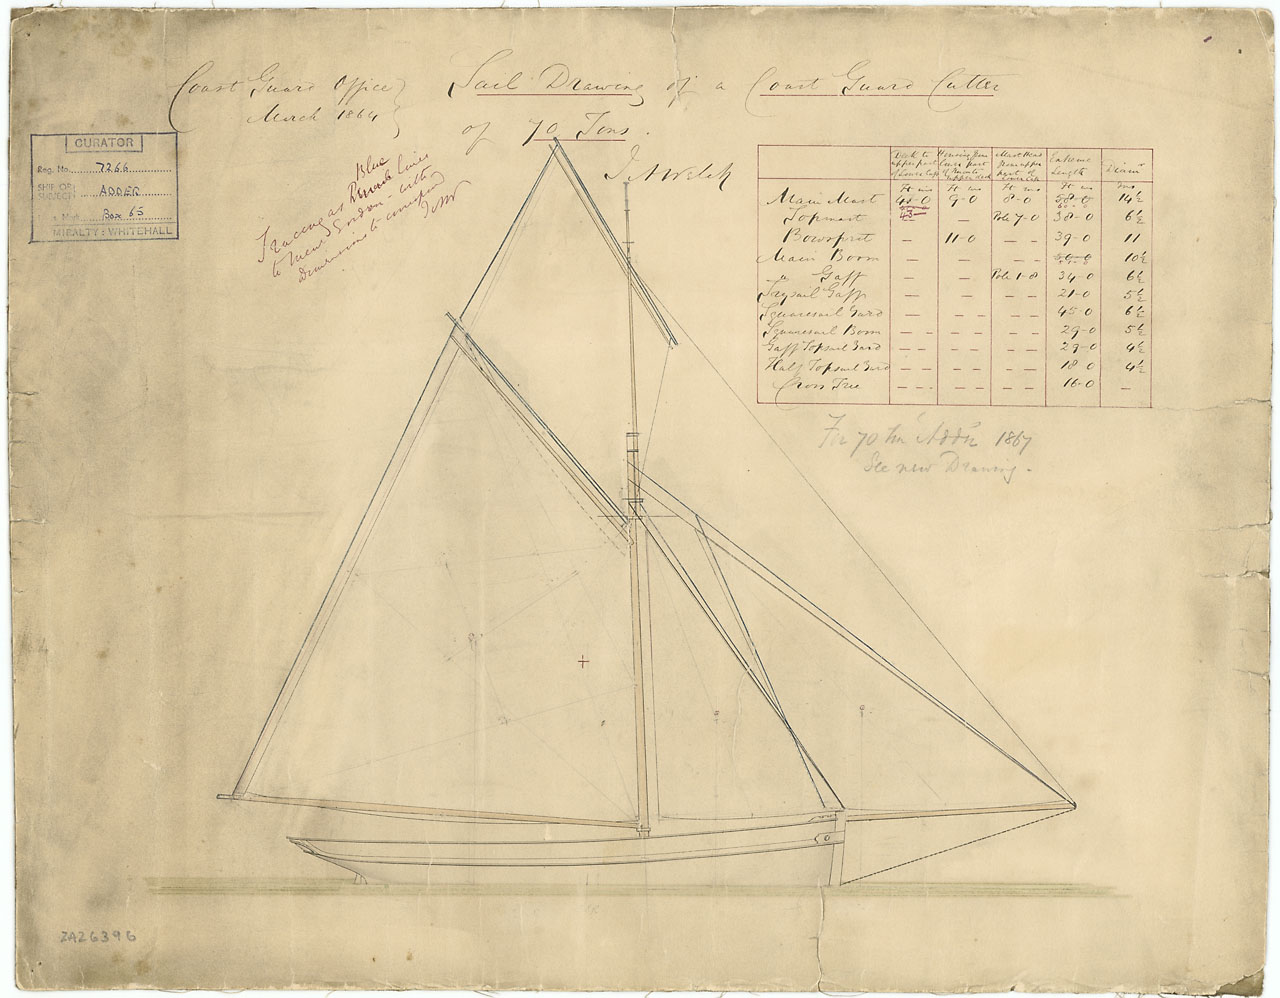 Coast Guard Office
March 1864
Sail Drawing of a Coast Guard Cutter
of 70 Tons.
CURATOR
Reg. No. 7266
SHIP OR SUBJECT: ADDER
Box 65
MIRALTY: WHITEHALL
Blue
Tracing as lines
to Messrs Gordon with
Dimensions
J A Welch
Deck to upper part of Lower Cap
Housing
Mast Head from upper part of
Extreme Length
Diamr
Ft ins Ft ins Ft ins Ft ins ins
Main Mast 9-0 8-0 58-0 14½
Topmast — Pole 7-0 38-0 6½
Bowsprit — 11-0 — — 39-0 11
Main Boom — — — — 10½
" Gaff — — Pole 1-8 34-0 6½
Trysail Gaff — — — — 21-0 5½
Squaresail Yard — — — — 45-0 6½
Squaresail Boom — — — — — — 29-0 5½
Gaff Topsail Yard — — — — — — 29-0 4½
Half Topsail Yard — — — — — — 18-0 4½
Cross Tree — — — — — — 16-0 —
For 70 tn 'Adder' 1867
See new Drawing.
ZAZ6396